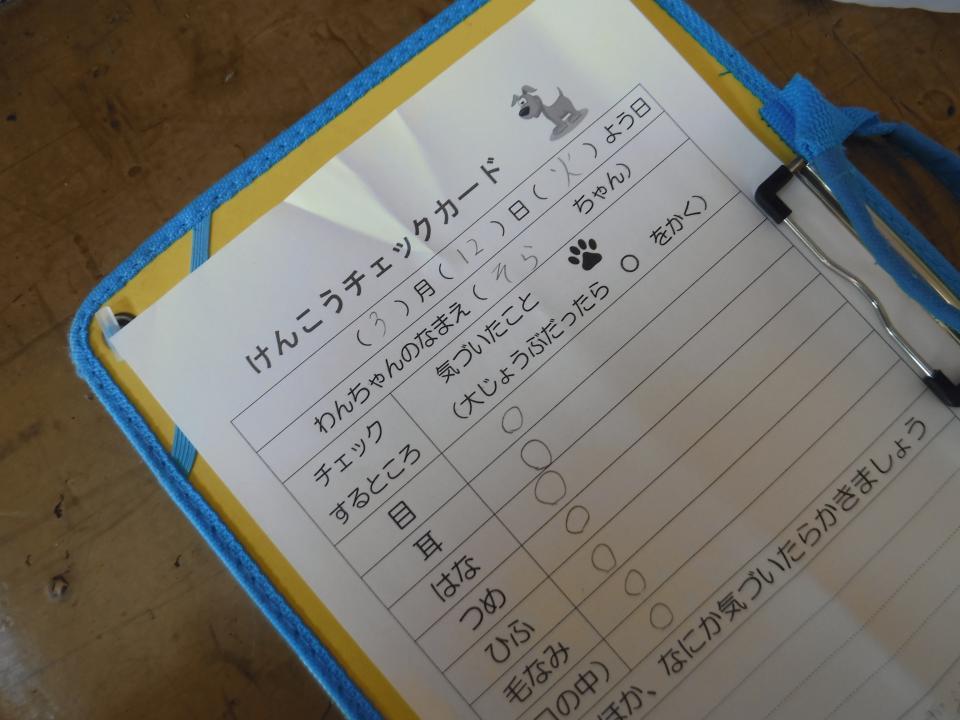 けんこうチェックカード
(3)月(12)日(火)よう日
わんちゃんのなまえ(そら ちゃん)
チェック
するところ
気づいたこと
(大じょうぶだったら ○ をかく)
目 ○
耳 ○
はな ○
つめ ○
ひふ ○
毛なみ ○
口の中) ○
ほか、なにか気づいたらかきましょう